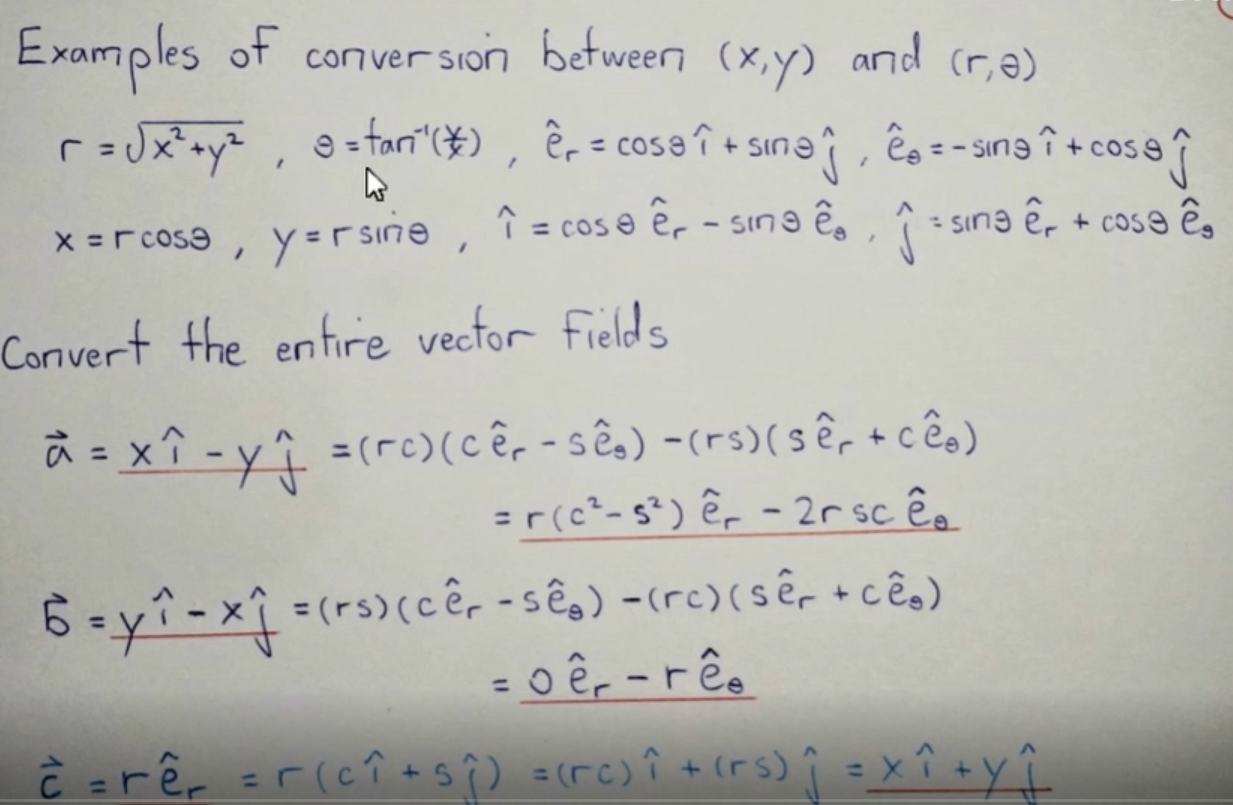 Examples of conversion between (x,y) and (r,θ)
r = √x²+y² , θ = tan⁻¹(y/x) , êᵣ = cosθ î + sinθ ĵ , ê_θ = -sinθ î + cosθ ĵ
x = r cosθ , y = r sinθ , î = cosθ êᵣ - sinθ ê_θ , ĵ = sinθ êᵣ + cosθ ê_θ
Convert the entire vector fields
a⃗ = x î - y ĵ = (rc)(c êᵣ - s ê_θ) - (rs)(s êᵣ + c ê_θ)
= r(c²-s²) êᵣ - 2r sc ê_θ
b⃗ = y î - x ĵ = (rs)(c êᵣ - s ê_θ) - (rc)(s êᵣ + c ê_θ)
= 0 êᵣ - r ê_θ
c⃗ = r êᵣ = r(c î + s ĵ) = (rc) î + (rs) ĵ = x î + y ĵ